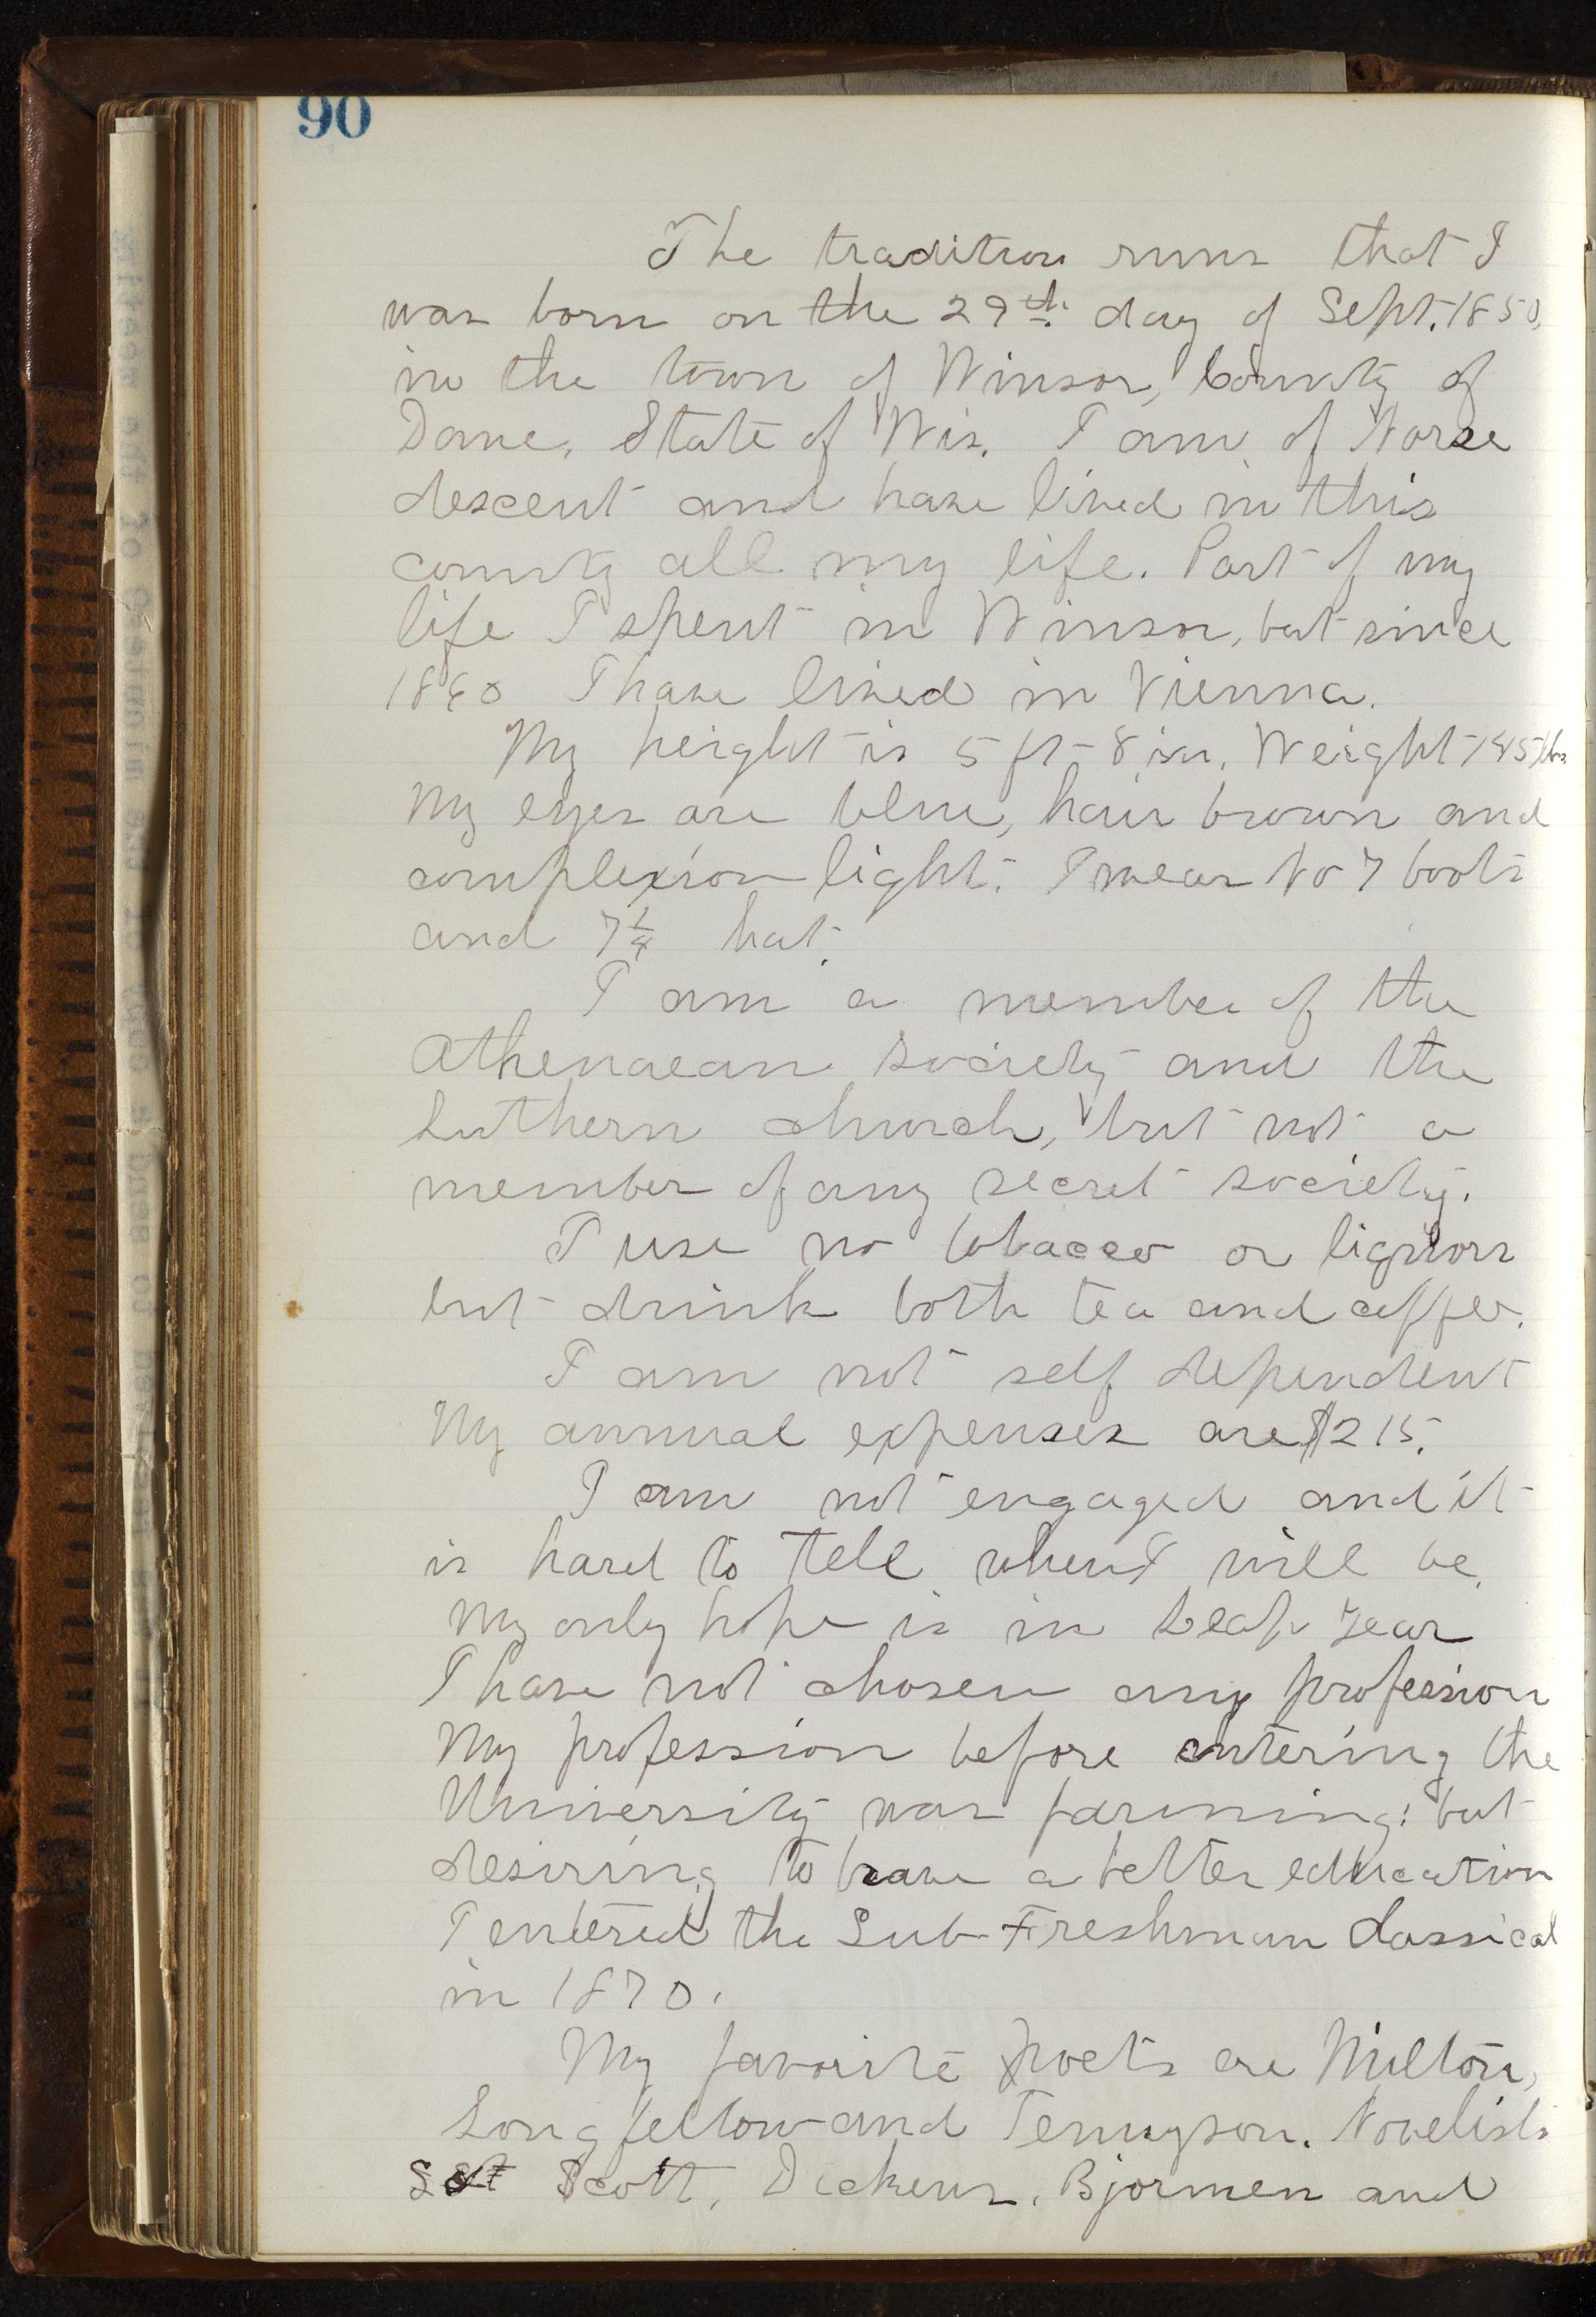 90
The tradition runs that I
was born on the 29th. day of Sept. 1850,
in the town of Winsor, County of
Dane, State of Wis. I am of Norse
descent and have lived in this
county all my life. Part of my
life I spent in Winsor, but since
1860 I have lived in Vienna.
My height is 5 ft 8 in. Weight 145 lbs
My eyes are blue, hair brown and
complexion light. I wear No 7 boots
and 7 1/4 hat.
I am a member of the
Athenaean society and the
Luthern church, but not a
member of any secret society.
I use no tobacco or liquors
but drink both tea and coffee.
I am not self dependent
My annual expenses are $215.
I am not engaged and it
is hard to tell when I will be.
My only hope is in Leap Year
I have not chosen any profession
My profession before entering the
University was farming; but
desiring to have a better education
I entered the Sub-Freshman Classical
in 1870.
My favorite poets are Milton,
Longfellow and Tennyson. Novelists
Scott, Dickens, Bjornsen and